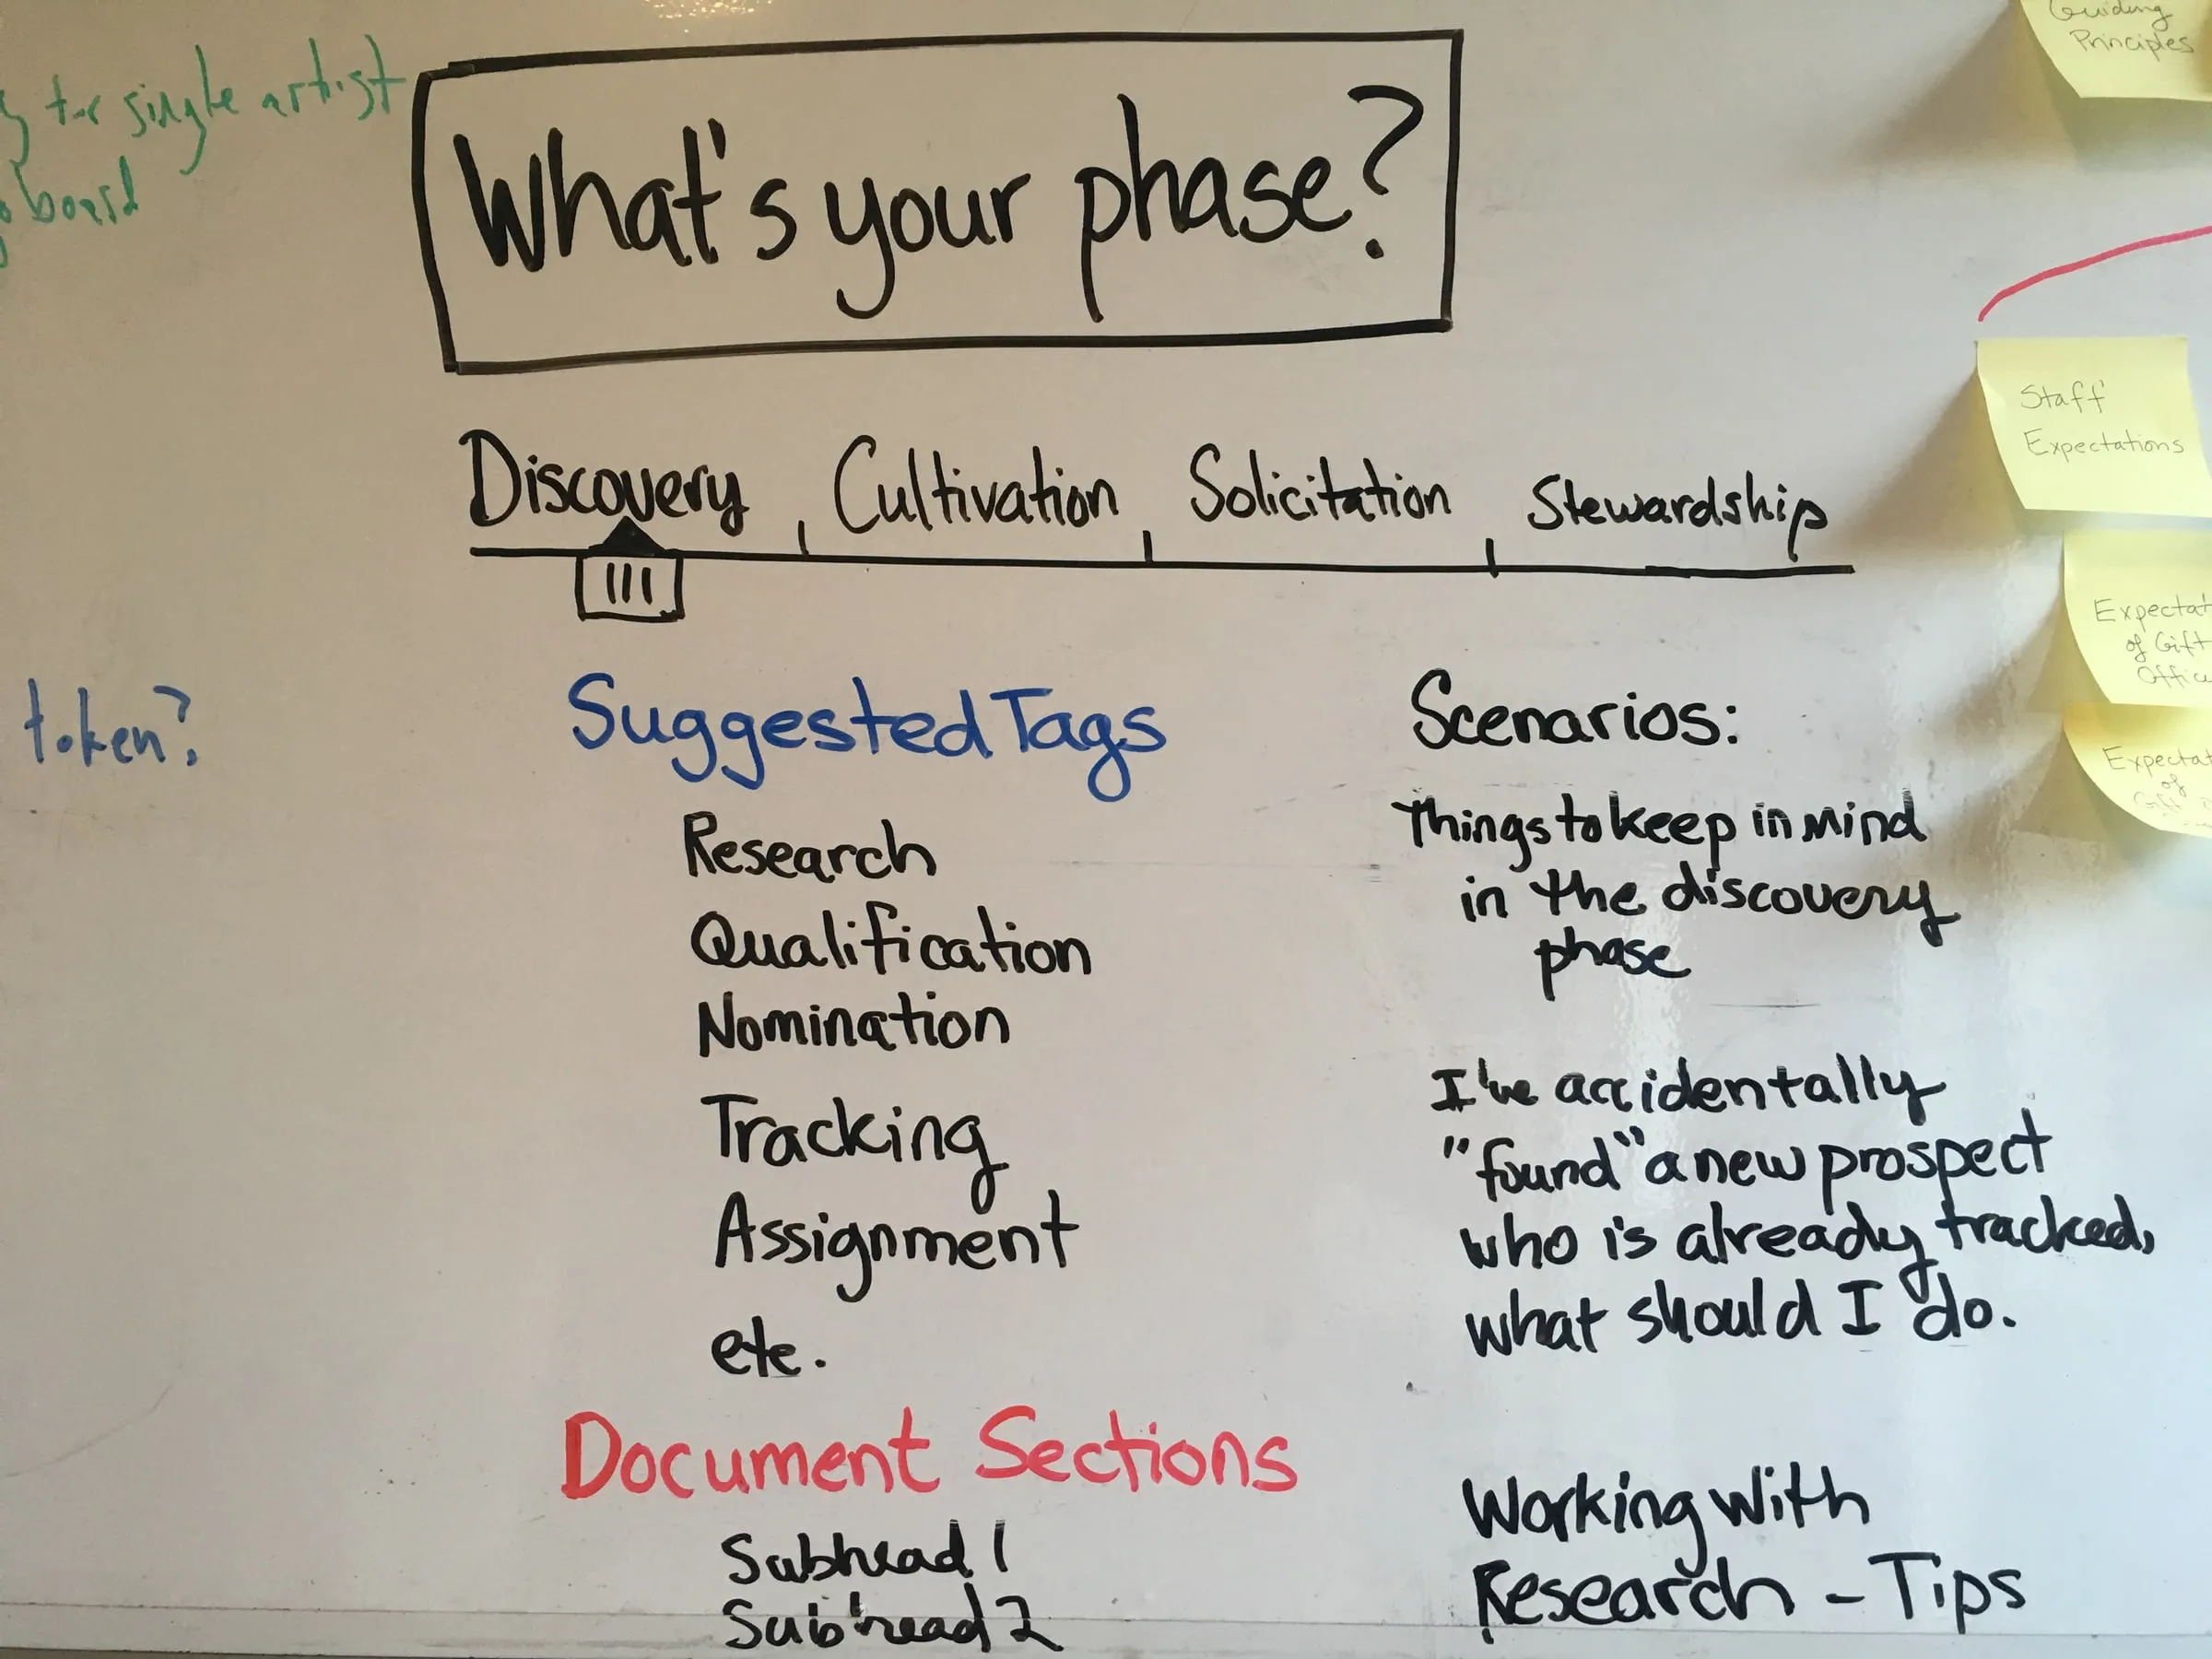 for single artist
board
What's your phase?
Discovery
Cultivation
Solicitation
Stewardship
token?
Suggested Tags
Research
Qualification
Nomination
Tracking
Assignment
etc.
Document Sections
Subhead 1
Subhead 2
Scenarios:
Things to keep in mind
in the discovery
phase
I've accidentally
"found" a new prospect
who is already tracked,
what should I do.
Working with
Research - Tips
Guiding
Principles
Staff
Expectations
Expectat
of Gift
Office
Expectat
of